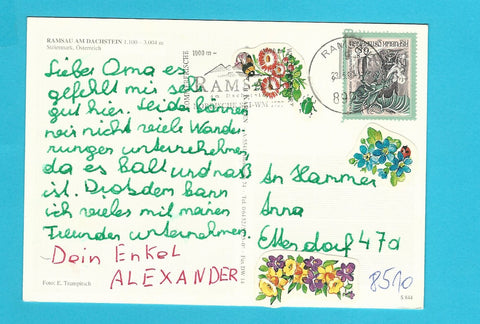 RAMSAU AM DACHSTEIN 1.100 - 3.004 m
Steiermark, Österreich
Lieber Oma es
gefellt mir sehr
gut hier. Leider können
wir nicht viele Wande
rungen unternehmen
da es kalt und naß
ist. Drotsdem kann
ich vieles mit meinen
Freunden unternehmen.
Dein Enkel
ALEXANDER
Foto: E.
1000 m
RAMSAU
am Dachstein
RAMSAU
REPUBLIK ÖSTERREICH
An Hammer
Anna
Ettendorf 47a
8510
S 844